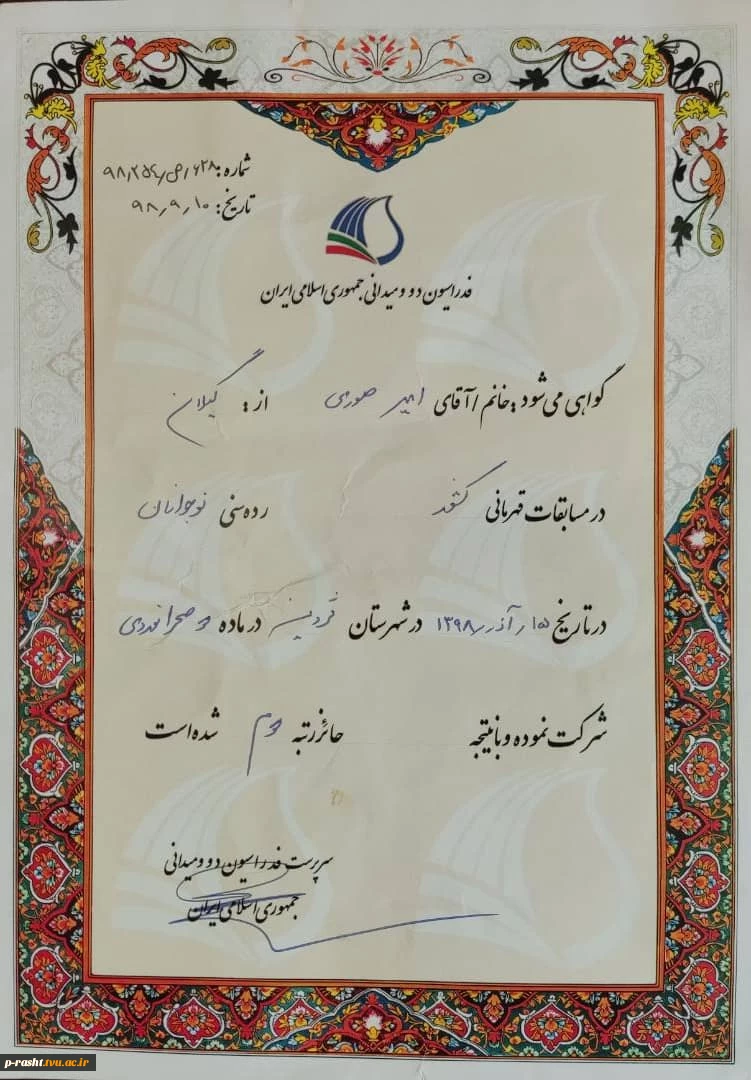 شماره: ۹۸٫۲۵٤٫ص٫۶۲۸
تاریخ: ۹۸٫۹٫۱۰
فدراسیون دو و میدانی جمهوری اسلامی ایران
گواهی می‌شود: خانم / آقای امیر صوری از: گیلان
در مسابقات قهرمانی کشور رده‌سنی نوجوانان
در تاریخ ۱۵ر آذر ۱۳۹۸ در شهرستان قزوین در ماده دو صحرانوردی
شرکت نموده و با نتیجه حائز رتبه دوم شده است
سرپرست فدراسیون دو و میدانی
جمهوری اسلامی ایران
p-rasht.tvu.ac.ir